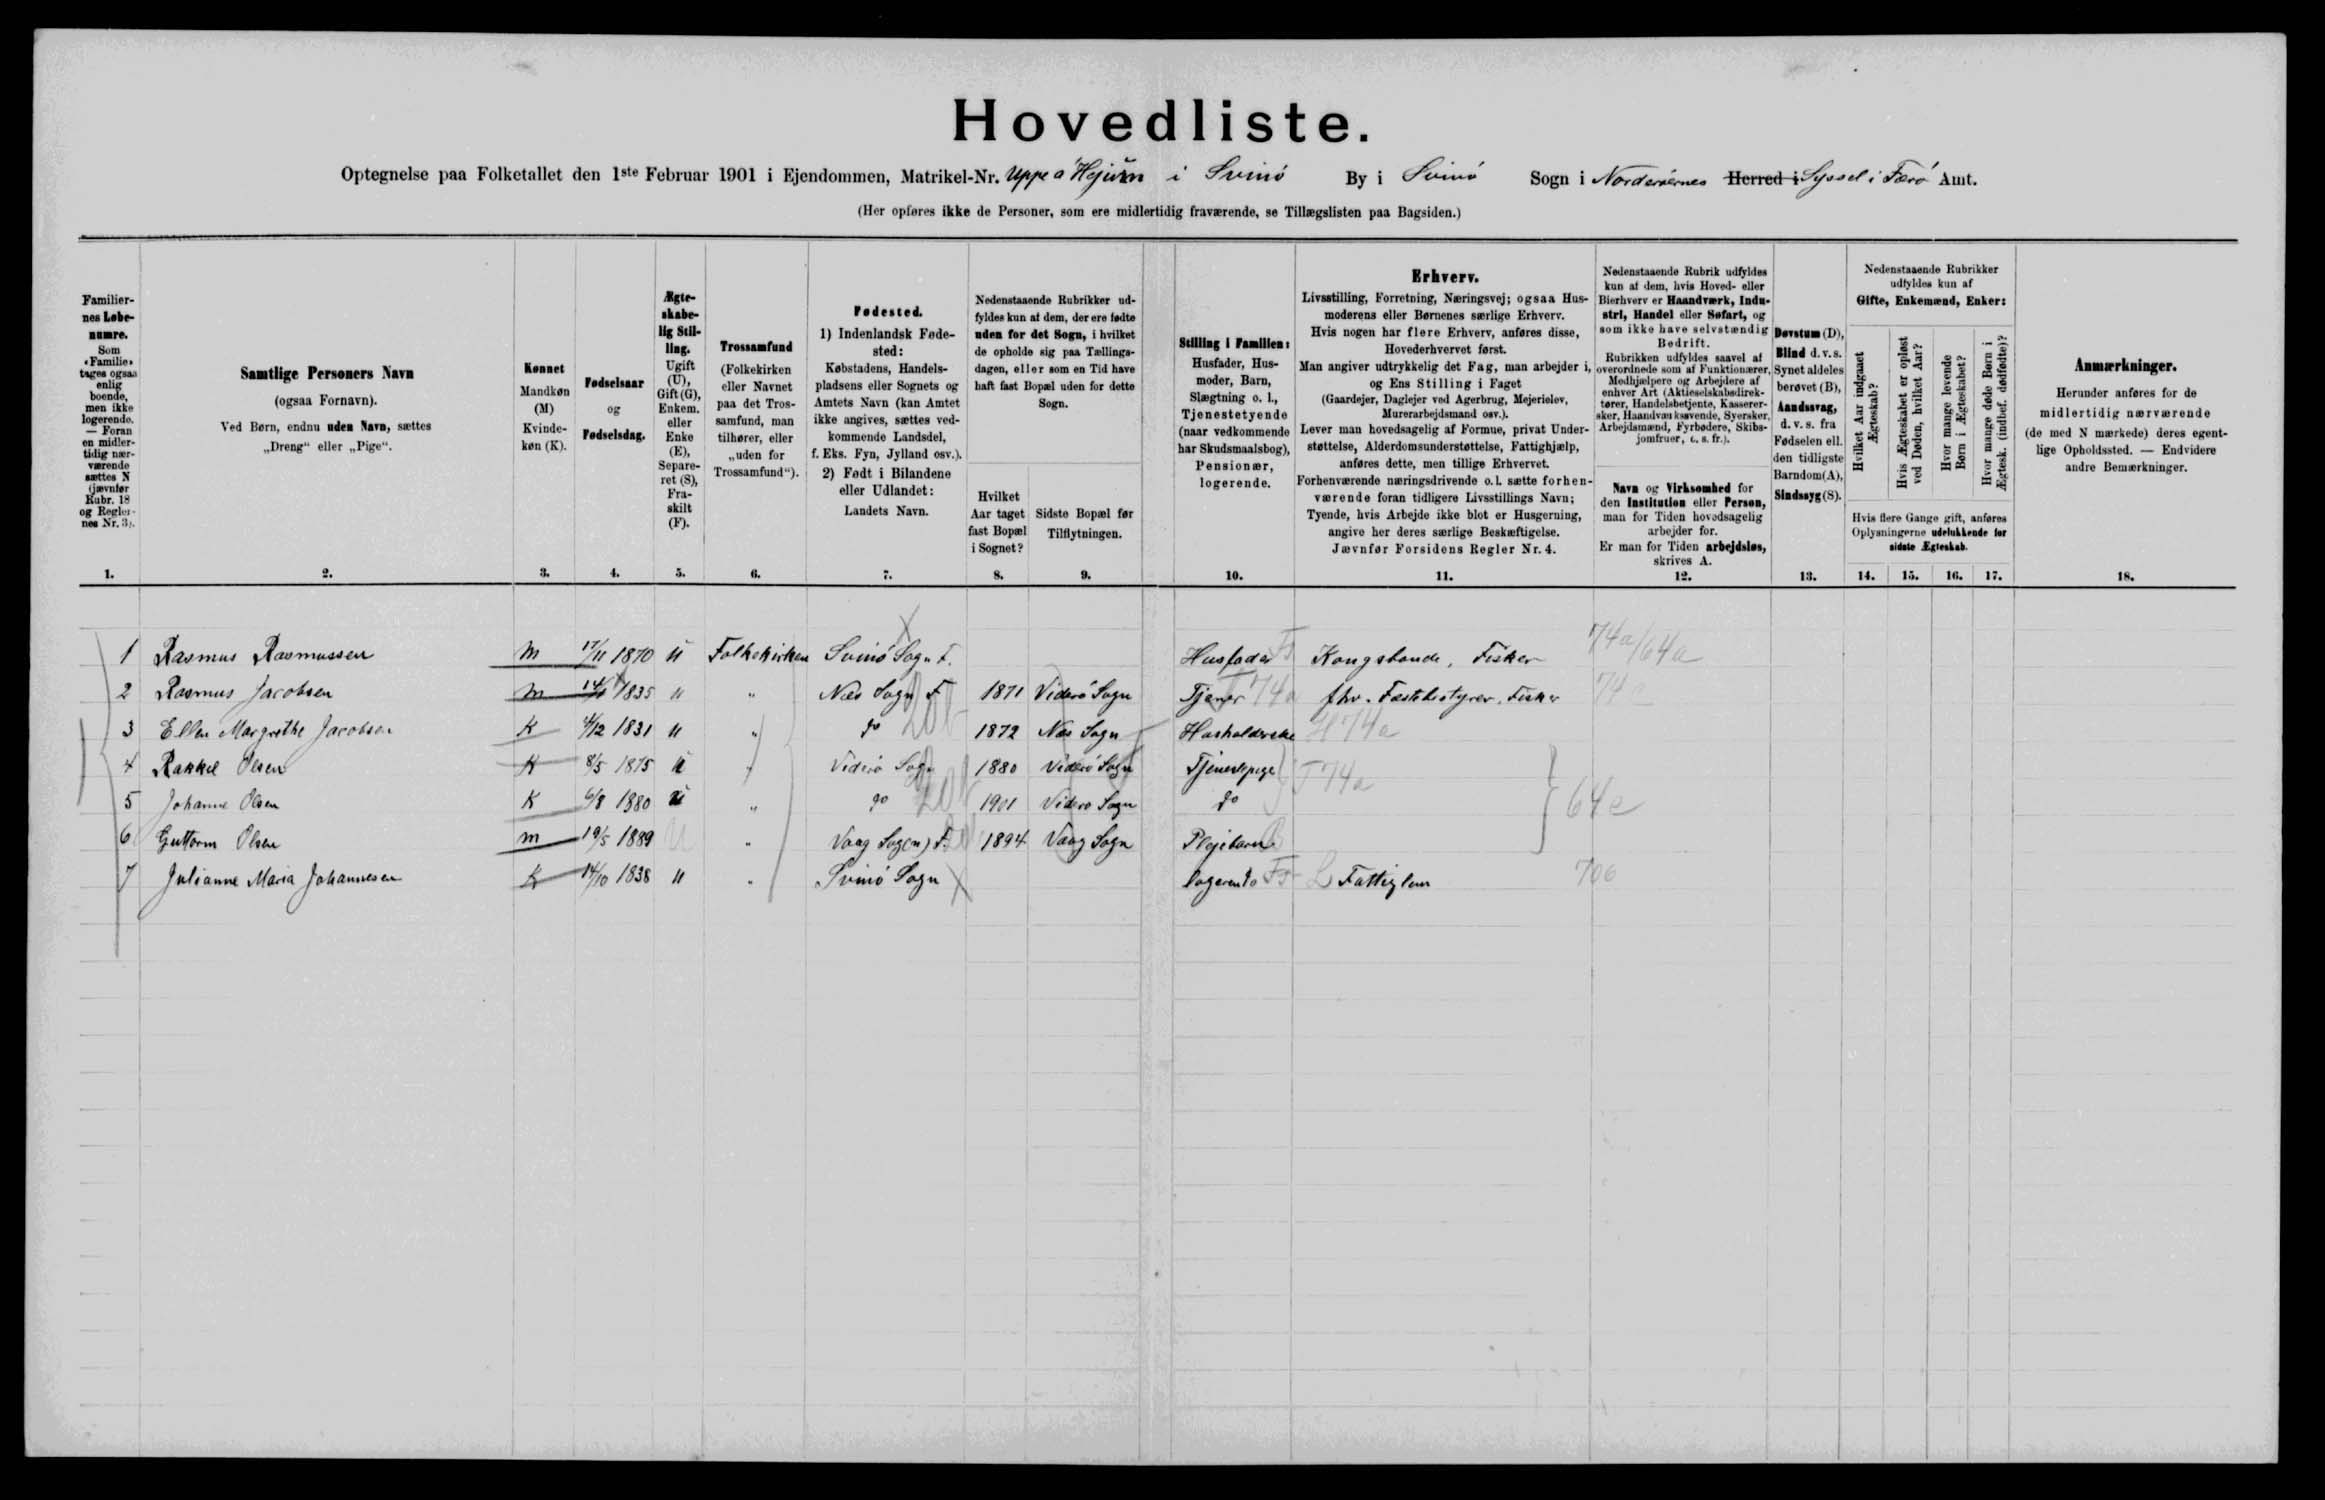 Hovedliste.
Optegnelse paa Folketallet den 1ste Februar 1901 i Ejendommen, Matrikel-Nr. Uppe á Hejúm i Svinö By i Svinö Sogn i Norderöernes Herred i Syssel i Færö Amt.
(Her opføres ikke de Personer, som ere midlertidig fraværende, se Tillægslisten paa Bagsiden.)
Familiernes Løbenumre.
Som «Familie» tages ogsaa enlig boende, men ikke logerende. — Foran en midlertidig nærværende sættes N (jævnfør Rubr. 18 og Reglernes Nr. 3).
1.
Samtlige Personers Navn
(ogsaa Fornavn).
Ved Børn, endnu uden Navn, sættes
„Dreng“ eller „Pige“.
2.
Kønnet
Mandkøn (M)
Kvindekøn (K).
3.
Fødselsaar
og
Fødselsdag.
4.
Ægteskabelig Stilling.
Ugift (U), Gift (G), Enkem. eller Enke (E), Separeret (S), Fraskilt (F).
5.
Trossamfund
(Folkekirken eller Navnet paa det Trossamfund, man tilhører, eller „uden for Trossamfund“).
6.
Fødested.
1) Indenlandsk Fødested:
Købstadens, Handelspladsens eller Sognets og Amtets Navn (kan Amtet ikke angives, sættes vedkommende Landsdel, f. Eks. Fyn, Jylland osv.).
2) Født i Bilandene eller Udlandet:
Landets Navn.
7.
Nedenstaaende Rubrikker udfyldes kun af dem, der ere fødte uden for det Sogn, i hvilket de opholde sig paa Tællingsdagen, eller som en Tid have haft fast Bopæl uden for dette Sogn.
Hvilket Aar taget fast Bopæl i Sognet?
8.
Sidste Bopæl før Tilflytningen.
9.
Stilling i Familien:
Husfader, Husmoder, Barn, Slægtning o. l., Tjenestetyende (naar vedkommende har Skudsmaalsbog), Pensionær, logerende.
10.
Erhverv.
Livsstilling, Forretning, Næringsvej; ogsaa Husmoderens eller Børnenes særlige Erhverv.
Hvis nogen har flere Erhverv, anføres disse, Hovederhvervet først.
Man angiver udtrykkelig det Fag, man arbejder i, og Ens Stilling i Faget
(Gaardejer, Daglejer ved Agerbrug, Mejerielev, Murerarbejdsmand osv.).
Lever man hovedsagelig af Formue, privat Understøttelse, Alderdomsunderstøttelse, Fattighjælp, anføres dette, men tillige Erhvervet.
Forhenværende næringsdrivende o.l. sætte forhenværende foran tidligere Livsstillings Navn;
Tyende, hvis Arbejde ikke blot er Husgerning, angive her deres særlige Beskæftigelse.
Jævnfør Forsidens Regler Nr. 4.
11.
Nedenstaaende Rubrik udfyldes kun af dem, hvis Hoved- eller Bierhverv er Haandværk, Industri, Handel eller Søfart, og som ikke have selvstændig Bedrift.
Rubrikken udfyldes saavel af overordnede som af Funktionærer, Medhjælpere og Arbejdere af enhver Art (Aktieselskabsdirektører, Handelsbetjente, Kasserersker, Haandværkssvende, Syersker, Arbejdsmænd, Fyrbødere, Skibsjomfruer, o. s. fr.).
Navn og Virksomhed for den Institution eller Person, man for Tiden hovedsagelig arbejder for.
Er man for Tiden arbejdsløs, skrives A.
12.
Døvstum (D), Blind d.v.s. Synet aldeles berøvet (B), Aandssvag, d.v.s. fra Fødselen ell. den tidligste Barndom (A), Sindssyg (S).
13.
Nedenstaaende Rubrikker udfyldes kun af
Gifte, Enkemænd, Enker:
Hvilket Aar indgaaet Ægteskab?
Hvis Ægteskabet er opløst ved Døden, hvilket Aar?
Hvor mange levende Børn i Ægteskabet?
Hvor mange døde Børn i Ægtesk. (indbef. dødfødte)?
Hvis flere Gange gift, anføres Oplysningerne udelukkende for sidste Ægteskab.
14. 15. 16. 17.
Anmærkninger.
Herunder anføres for de midlertidig nærværende (de med N mærkede) deres egentlige Opholdssted. — Endvidere andre Bemærkninger.
18.
1 Rasmus Rasmussen M 17/11 1870 U Folkekirken Svinö Sogn F. Husfader Fs Kongsbonde, Fisker 74a/64a
2 Rasmus Jacobsen M 1835 " " Næs Sogn F 1871 Viderö Sogn Tjener T 74a fhv. Fæstebestyrer. Fisker
3 Ellen Margrethe Jacobsen K 4/12 1831 " " do 1872 Næs Sogn Husholderske H 74a
4 Rakkel Olsen K 8/5 1875 U " Viderö Sogn 1880 Viderö Sogn Tjenestepige T 74a
5 Johanne Olsen K 6/8 1880 U " do 1901 Viderö Sogn do 64e
6 Guttorm Olsen M 19/5 1889 U " Vaag Sog(n) F. 1894 Vaag Sogn Plejebarn B
7 Julianne Maria Johannesen K 14/10 1838 " " Svinö Sogn logerende Fs L Fattiglem 706